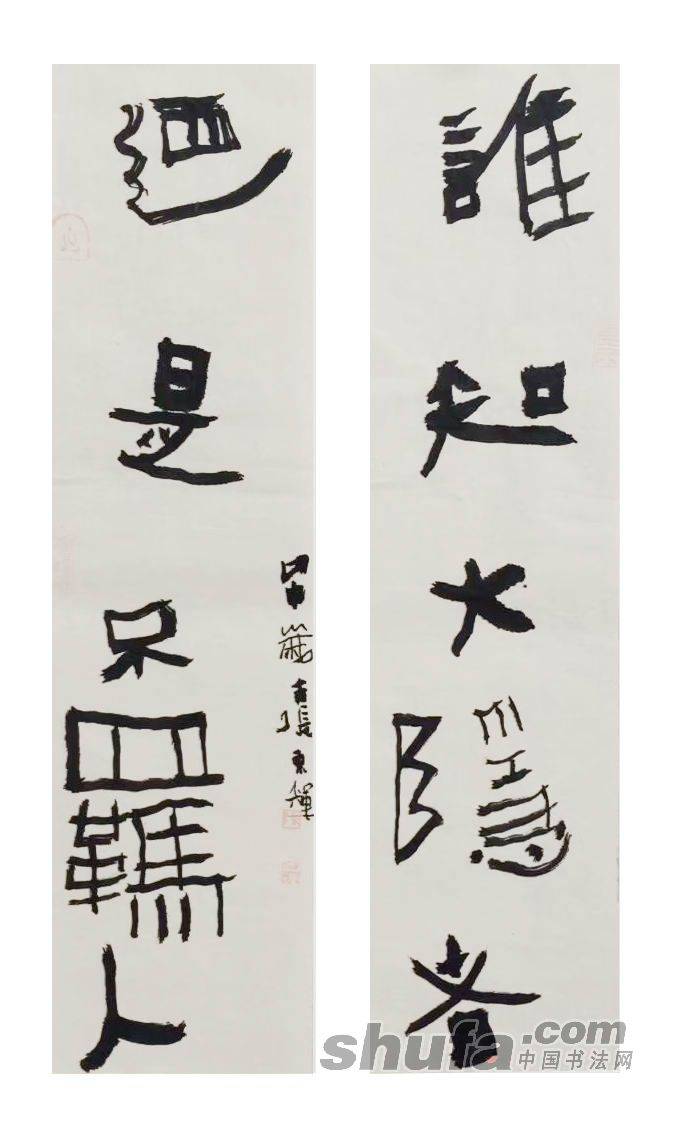 誰知大隱者
迺是不羈人
張東輝
shufa.com
中国书法网